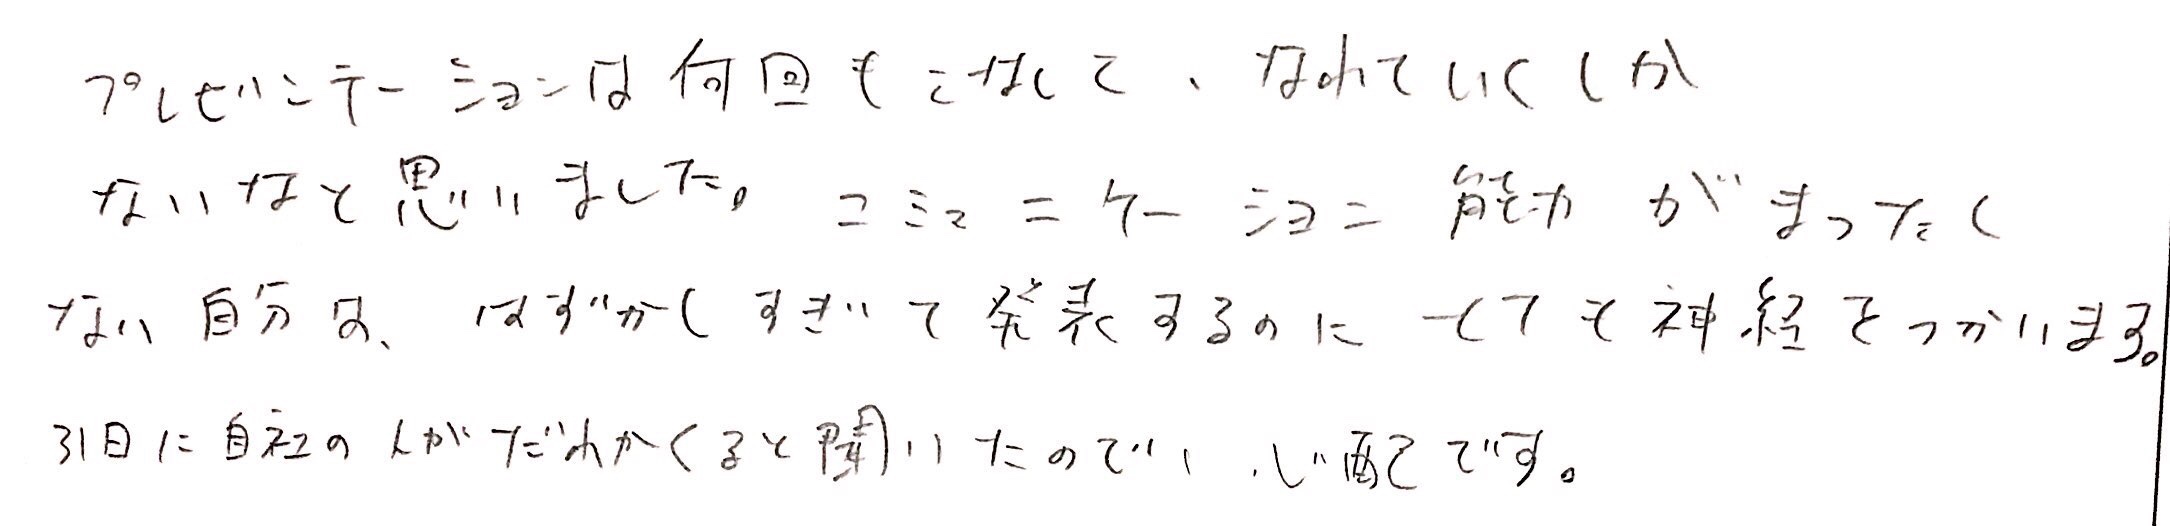 プレゼンテーションは何回もこなして、なれていくしか
ないなと思いました。コミュニケーション能力がまったく
ない自分は、はずかしすぎて発表するのにとても神経をつかいます。
31日に自社の人がだれかくると聞いたので、心配です。